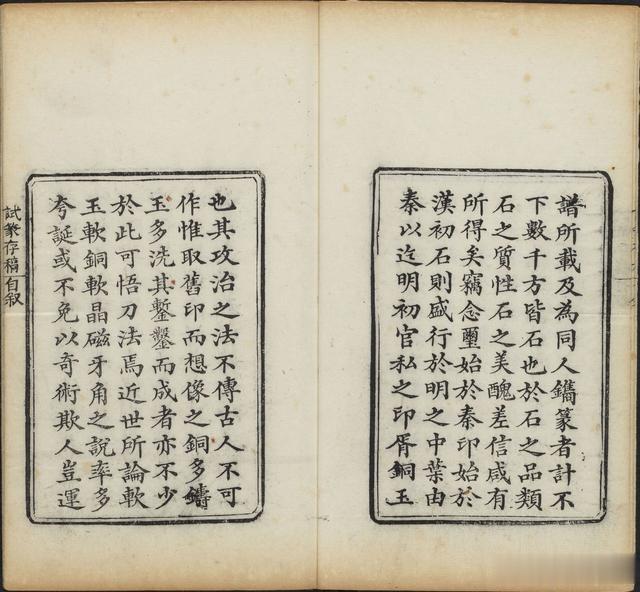 譜所載及為同人鐫篆者計不
下數千方皆石也於石之品類
石之質性石之美醜差信咸有
所得矣竊念璽始於秦印始於
漢初石則盛行於明之中葉由
秦以迄明初官私之印胥銅玉
也其攻治之法不傳古人不可
作惟取舊印而想像之銅多鑄
玉多洗其鏨鑿而成者亦不少
於此可悟刀法焉近世所論軟
玉軟銅軟晶磁牙角之說率多
夸誕或不免以奇術欺人豈運
試篆存稿自敘